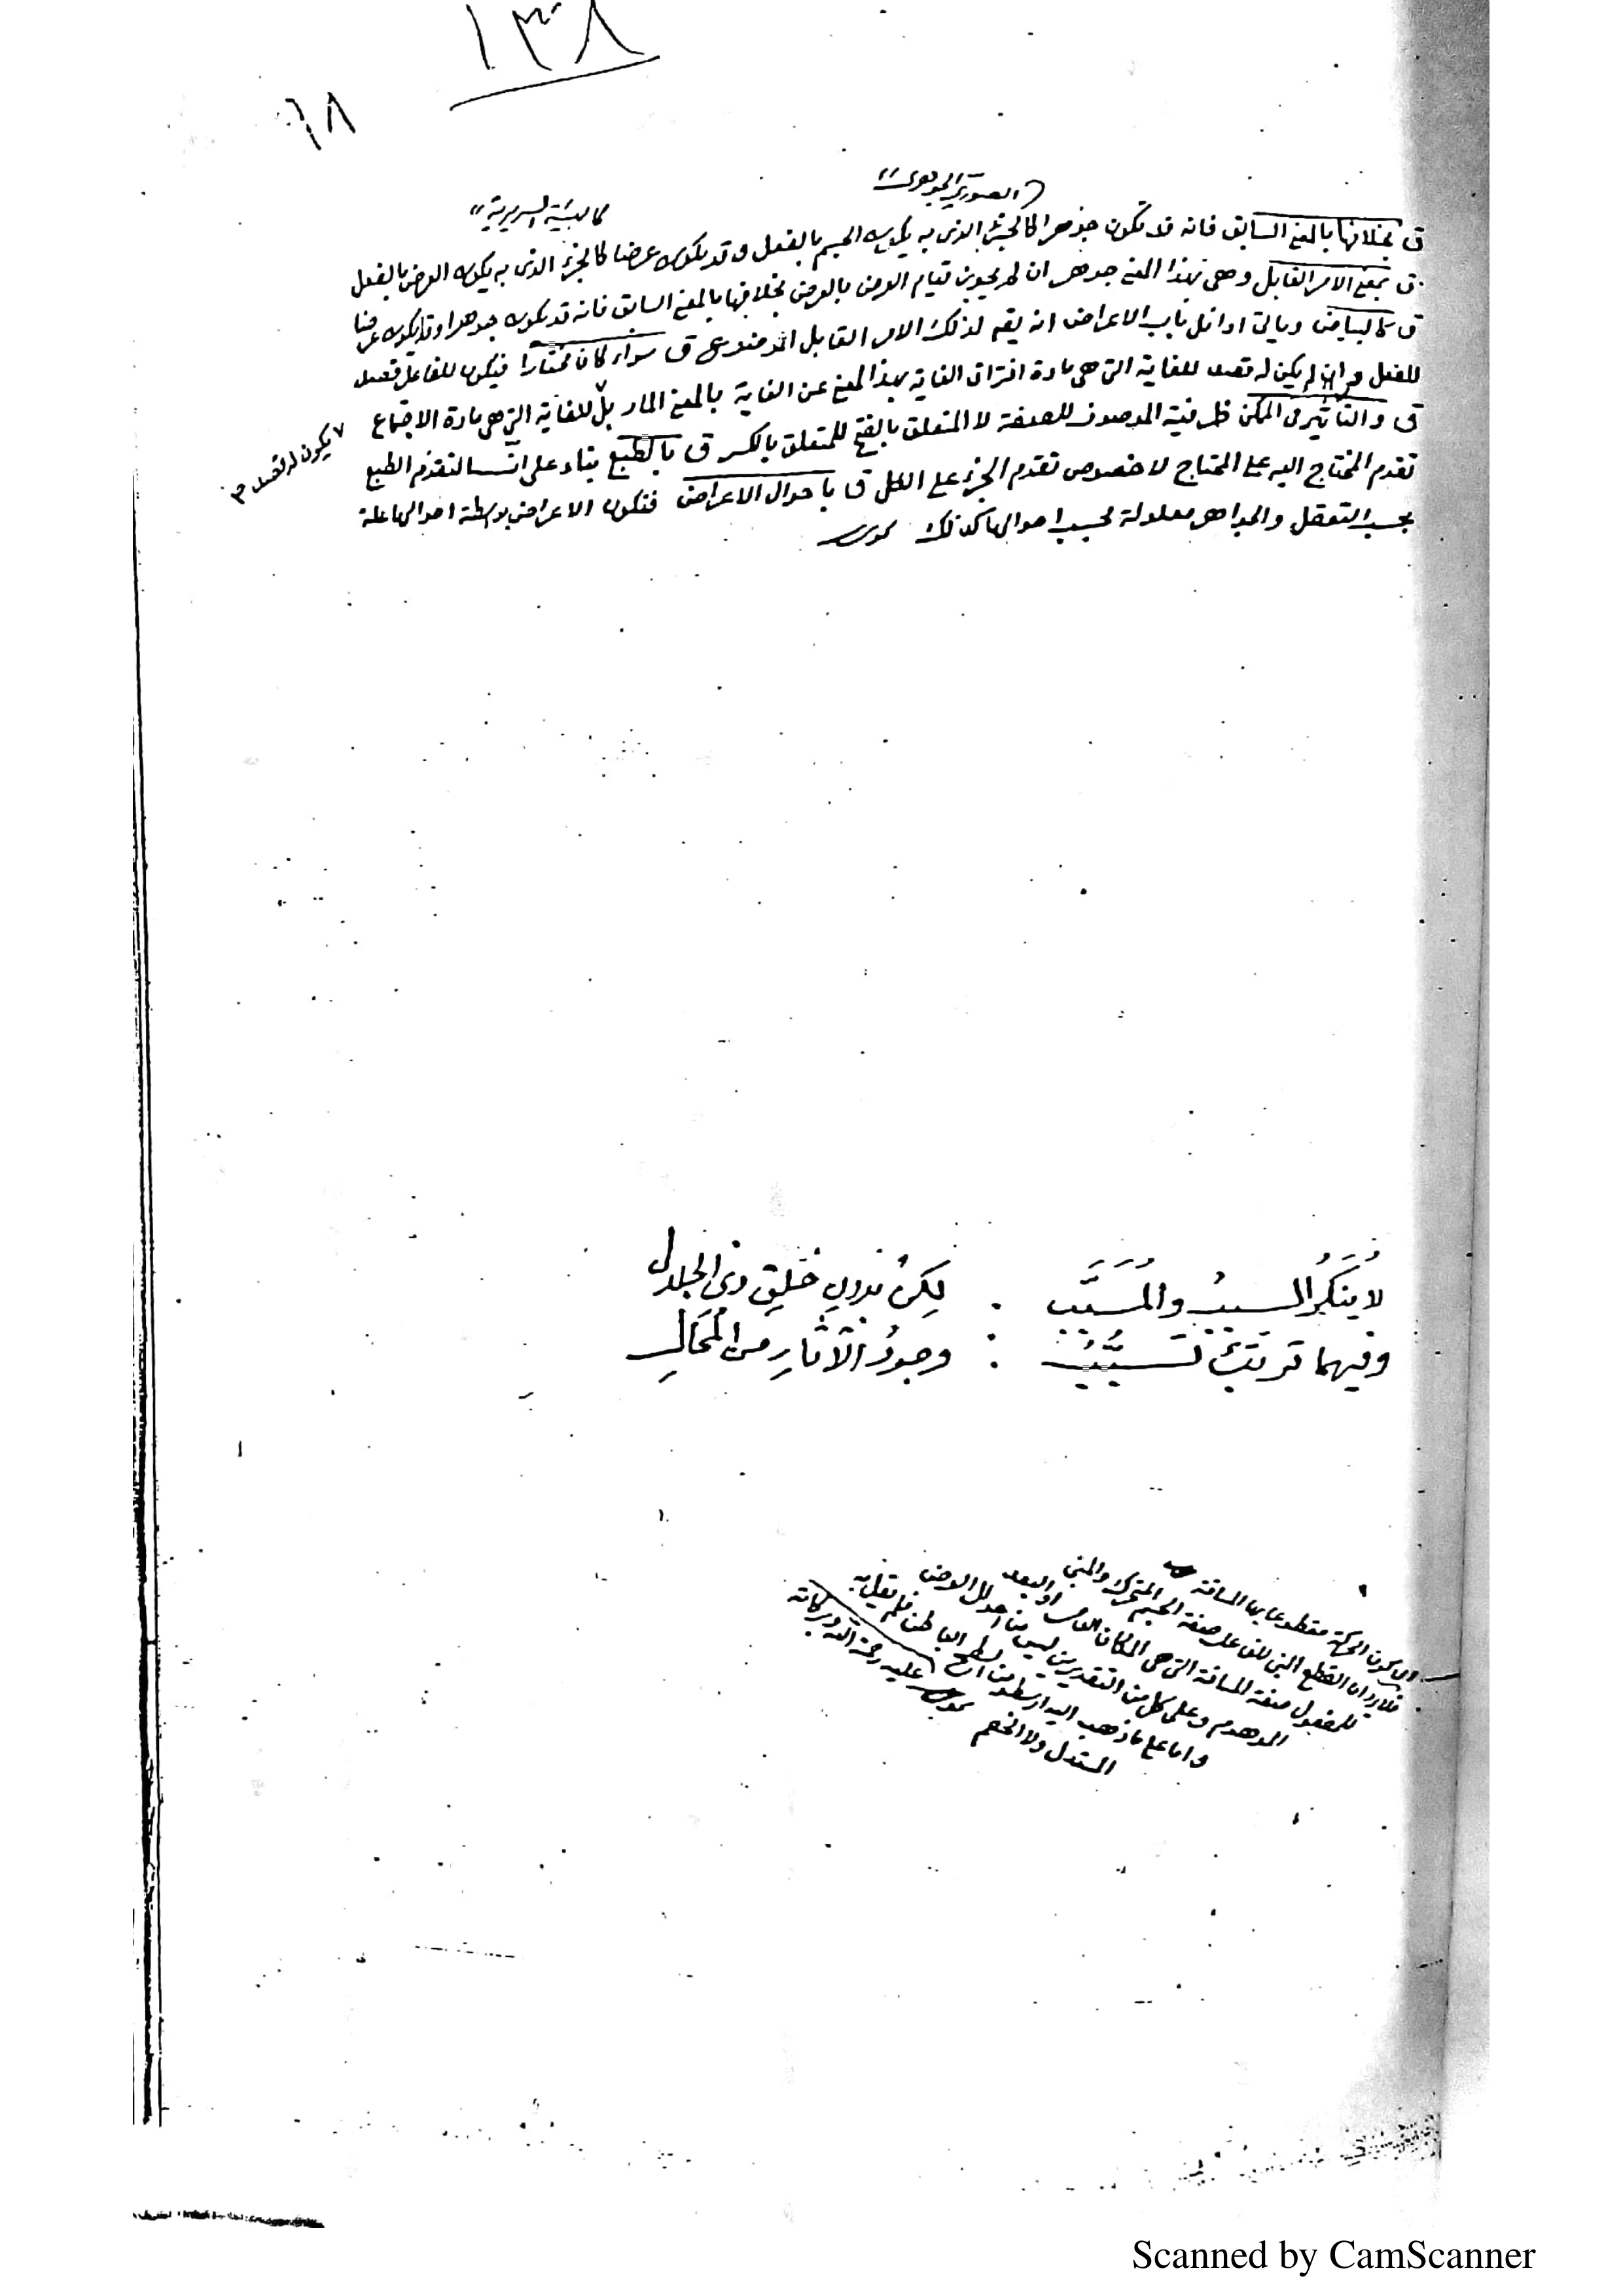 ١٣٨
٦٨
(الصورة الجوهرى"
كالهيئة السريرية"
ق بخلافها بالمعنى السابق فانه قد تكون جوهرا كالجزء الذى به يكون الجسم بالفعل وقد يكون عرضا كالجزء الذى به يكون العرض بالفعل
ق بمعنى الامر القابل وهى بهذا المعنى جوهر ان لم يجوز قيام العرض بالعرض بخلافها بالمعنى السابق فانه قد يكون جوهرا وقد يكون عرضا
ق كالبياض وياتى اوائل باب الاعراض انه يقم لذلك الامر القابل الموضوع ق سواء كان مختارا فيكون للفاعل قصد
للفعل وان لم يكن له قصد للغاية التى هى مادة افتراق الغاية بهذا المعنى عن الغاية بالمعنى المار بل للغاية التى هى مادة الاجتماع
٧ يكون له قصد م
ق والتأثير فى الممكن ظرفية الموصوف للصفة لا المتعلق بالفتح للمتعلق بالكسر ق بالطبع بناء على ان التقدم الطبع
تقدم المحتاج اليه على المحتاج لا خصوص تقدم الجزء على الكل ق باحوال الاعراض فتكون الاعراض بواسطة احوالها علة
بحسب التعقل والجواهر معلولة بحسب احوالها كذلك
لا ينكر السبب والمسبب . لكن بدون خلق ذى الجلال
وفيهما ترتب تسبب : وجود الآثار من المحال
اى كون الحركة مقطوعا بها المسافة
فلا يرد ان القطع المبنى للفاعل صفة الجسم المتحرك والمبنى
للمفعول صفة المسافة التى هى المكان او البعد
الموهوم وعلى كل من التقديرين ليس من احوال العرض
واما على ما ذهب اليه ارسطو من انه السطح الباطن فلم يقل به
المستدل ولا الخصم عليه رحمة الله وبركاته
Scanned by CamScanner